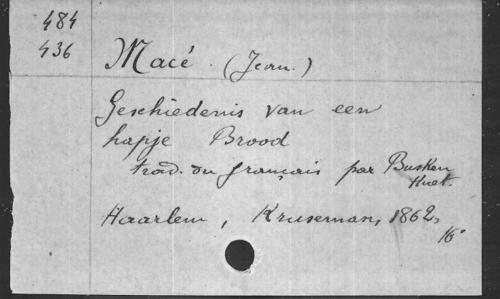 484
436
Macé (Jean.)
Geschiedenis van een
hapje Brood
trad. du français par Busken
Huet.
Haarlem, Kruseman, 1862,
16°